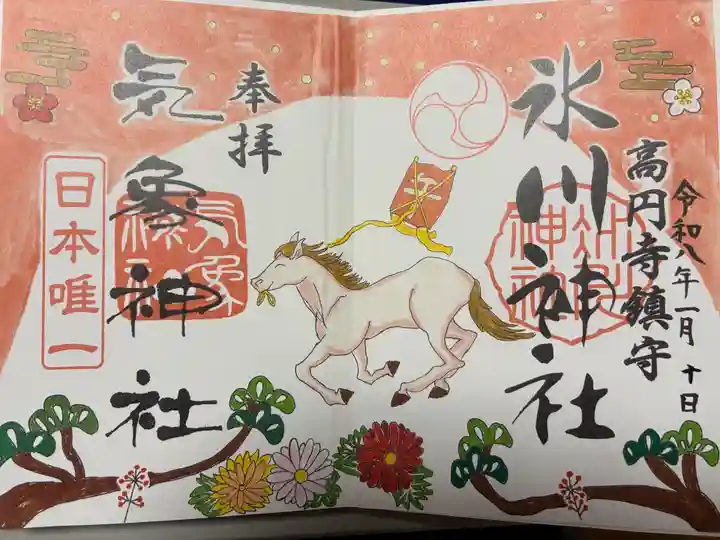 令和八年一月十日
高円寺鎮守
氷川神社
奉拝
気象神社
気象神社
日本唯一